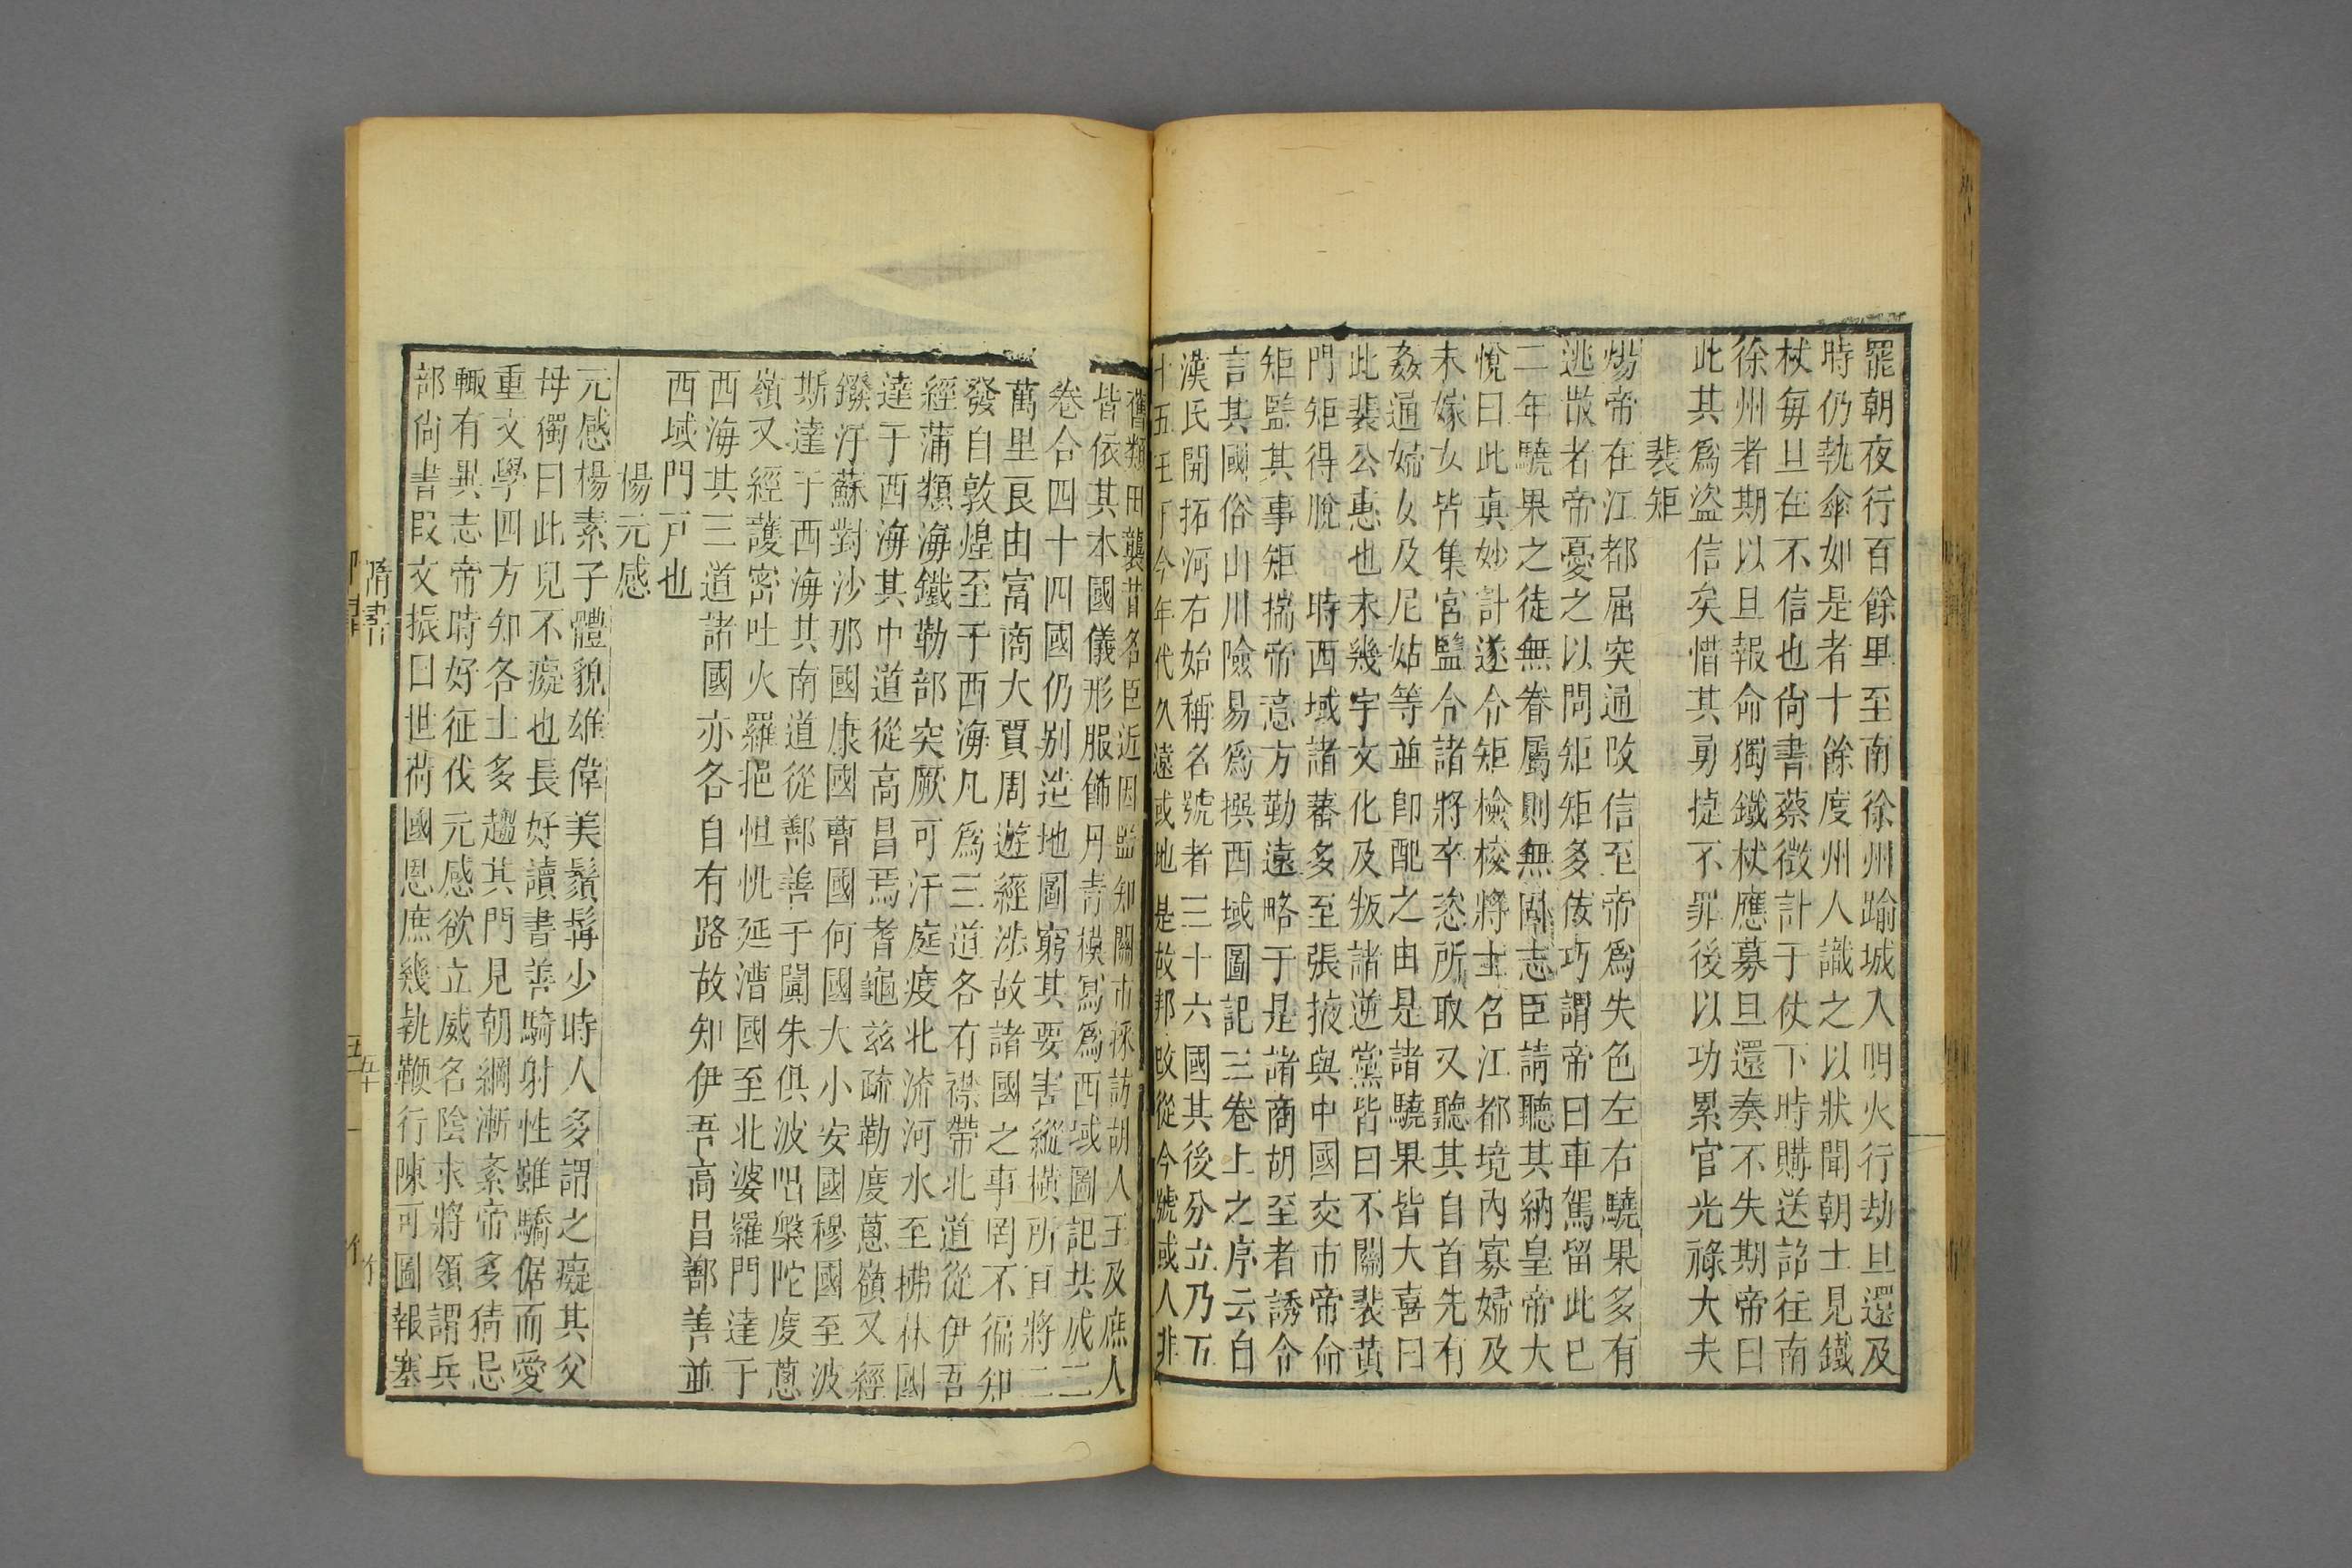 罷朝夜行百餘里至南徐州踰城入明火行劫旦還及
時仍執傘如是者十餘度州人識之以狀聞朝士見鐵
杖每旦在不信也尚書蔡徵計于仗下時購送詔往南
徐州者期以旦報命獨鐵杖應募旦還奏不失期帝曰
此其為盜信矣惜其勇捷不罪後以功累官光祿大夫
裴矩
煬帝在江都屈突通敗信至帝為失色左右驍果多有
逃散者帝憂之以問矩矩多佞巧謂帝曰車駕留此已
二年驍果之徒無眷屬則無固志臣請聽其納皇帝大
悅曰此真妙計遂令矩檢校將士名江都境內寡婦及
未嫁女皆集宮監令諸將卒恣所取又聽其自首先有
姦通婦女及尼姑等並即配之由是諸驍果皆大喜曰
此裴公惠也未幾宇文化及叛諸逆黨皆曰不關裴黃
門矩得脫　時西域諸蕃多至張掖與中國交市帝命
矩監其事矩揣帝意方勤遠略于是諸商胡至者誘令
言其國俗山川險易為撰西域圖記三卷上之序云自
漢氏開拓河右始稱名號者三十六國其後分立乃五
十五王于今年代久遠或地是故邦改從今號或人非
舊類田襲昔名臣近因監知關市採訪胡人王及庶人
皆依其本國儀形服飾丹青模寫為西域圖記共成三
卷合四十四國仍別造地圖窮其要害縱橫所亘將二
萬里良由富商大賈周遊經涉故諸國之事罔不徧知
發自敦煌至于西海凡為三道各有襟帶北道從伊吾
經蒲類海鐵勒部突厥可汗庭度北流河水至拂菻國
達于西海其中道從高昌焉耆龜茲疏勒度蔥嶺又經
鏺汗蘇對沙那國康國曹國何國大小安國穆國至波
斯達于西海其南道從鄯善于闐朱俱波唱槃陀度蔥
嶺又經護密吐火羅挹怛忛延漕國至北婆羅門達于
西海其三道諸國亦各自有路故知伊吾高昌鄯善並
西域門戸也
楊元感
元感楊素子體貌雄偉美鬚髯少時人多謂之癡其父
母獨曰此兒不癡也長好讀書善騎射性雖驕倨而愛
重文學四方知各士多趨其門見朝綱漸紊帝多猜忌
輙有異志帝時好征伐元感欲立威名陰求將領謂兵
部尚書段文振曰世荷國恩庶幾執鞭行陳可圖報塞
隋書
五十
竹